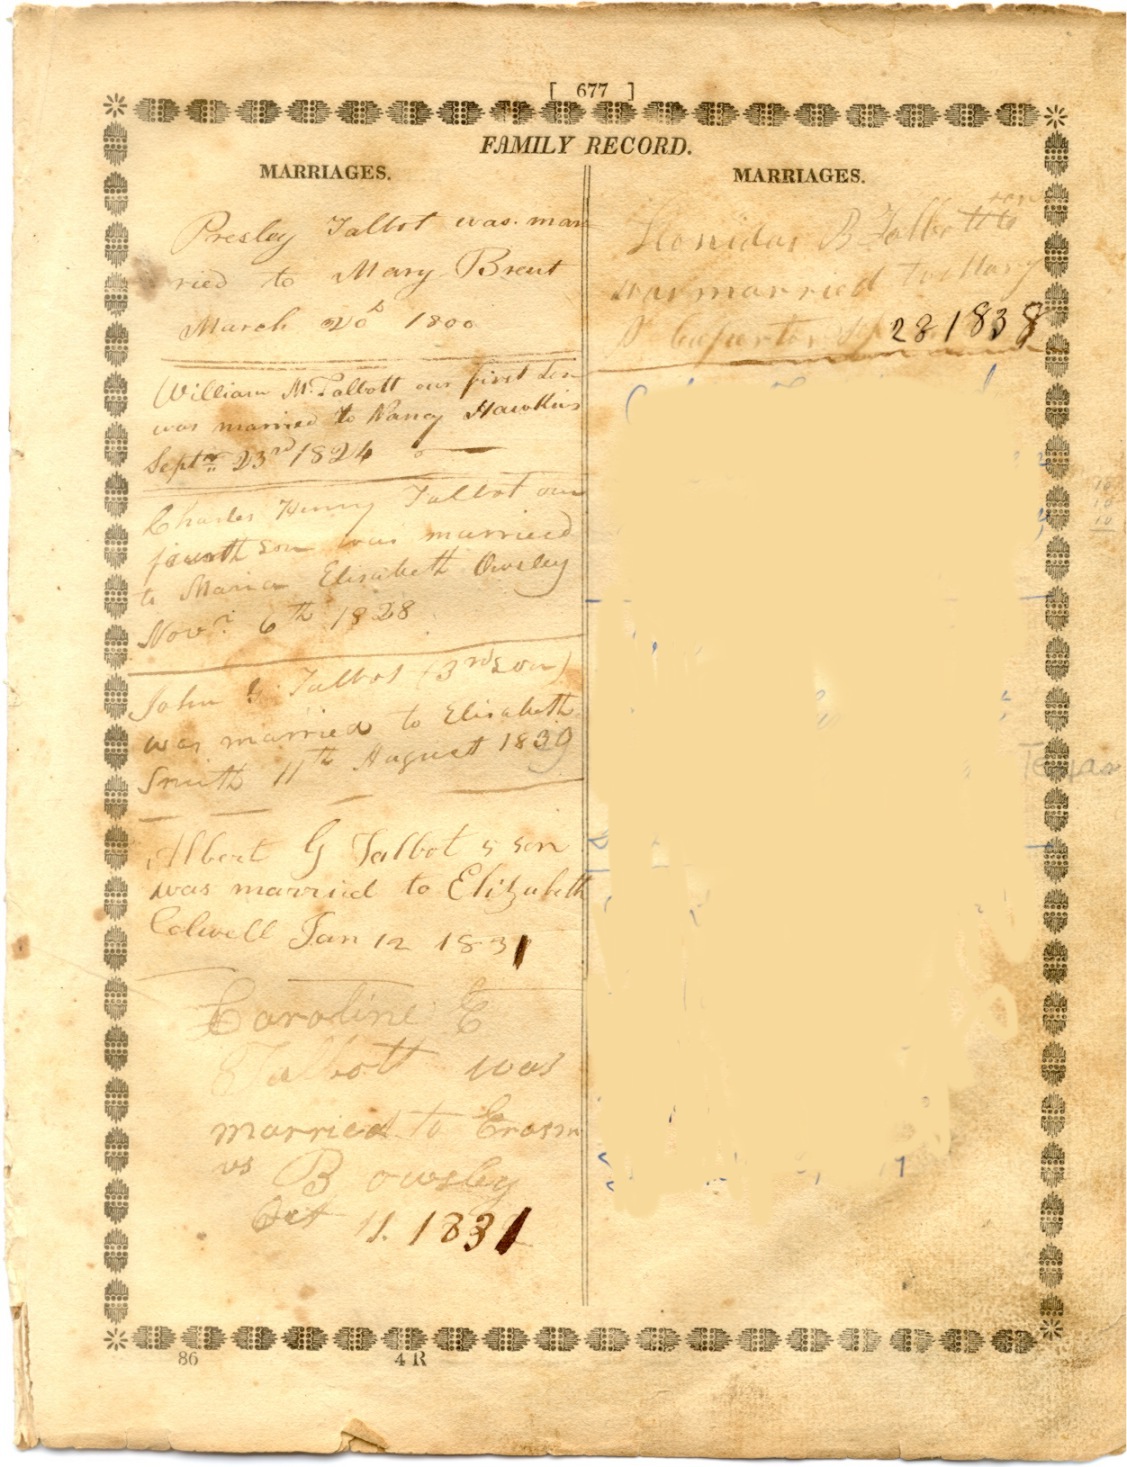 [ 677 ]
FAMILY RECORD.
MARRIAGES.
Presley Talbot was mar
ried to Mary Brent
March 20 1800
William M. Talbott our first Son
was married to Nancy Hawkins
Sept 23rd 1824
Charles Henry Talbot our
fourth son was married
to Maria Elisabeth Owsley
Novr 6th 1828
John Talbot (3rd son)
was married to Elisabeth
Smith 11th August 1839
Albert G Talbot 5 son
was married to Elizabeth
Colwell Jan 12 1831
Caroline E
Talbott was
married to Erasm
us B Owsley
Oct 11. 1831
MARRIAGES.
Leonidas B Talbott
was married to Mary
28 1838
Texas
86
4 R